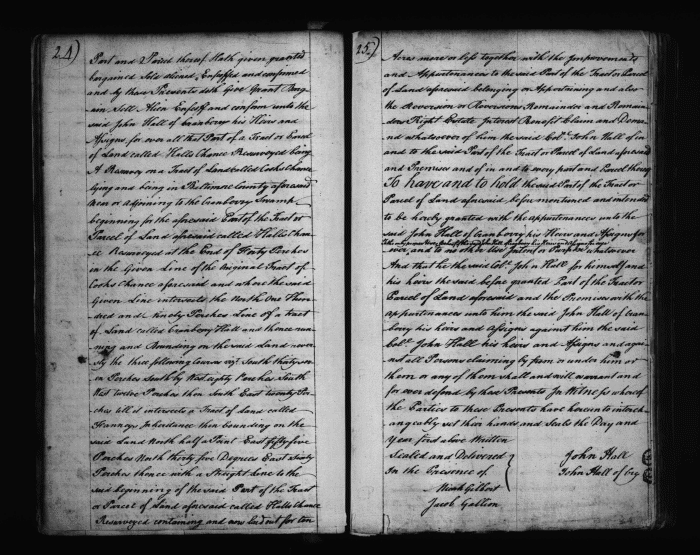 24)
Part and Parcel thereof Hath given granted
bargained Sold aliened Enfeoffed and confirmed
and by these Presents doth Give Grant Barg-
ain Sell Alien Enfeoff and confirm unto the
said John Hall of Cranberry his Heirs and
Assigns for ever all that Part of a Tract or Parcel
of Land called Halls Chance Resurveyed being
A Resurvey on a Tract of Land called Cooks Chance
lying and being in Baltimore County aforesaid
near or adjoining to the Cranberry Swamp
beginning for the aforesaid Part of the Tract or
Parcel of Land aforesaid called Halls Chan-
ce Resurveyed at the End of Forty Perches
in the Given Line of the Original Tract of
Cooks Chance aforesaid and where the said
Given Line intersects the North One Hun-
dred and Ninety Perches Line of a tract
of Land called Cranberry Hall and thence run-
ning and Bounding on the said Land revers-
ly the three following Courses vizt. South thirty sev-
en Perches South by West eighty Perches South
West twelve Perches then South East twenty Per-
ches till it intersects a Tract of Land called
Inheritance then bounding on the
said Land North half a Point East fifty five
Perches North thirty five Degrees East Sixty
Perches thence with a Straight Line to the
said beginning of the said Part of the Tract
or Parcel of Land aforesaid called Halls Chance
Resurveyed containing and now laid out for ten
25)
Acres more or less together with the Improvements
and Appurtenances to the said Part of the Tract or Parcel
of Land aforesaid belonging or Appertaining and also
the Reversion or Reversions Remainder and Remain-
ders Right Estate Interest Benefit Claim and Dem-
and whatsoever of him the said Colo. John Hall of in
and to the said Part of the Tract or Parcel of Land aforesaid
and Premises and of in and to every part and Parcel thereof
To have and to hold the said Part of the Tract or
Parcel of Land aforesaid before mentioned and intended
to be hereby granted with the appurtenances unto the
said John Hall of Cranberry his Heirs and Assigns for
ever and to no other Use Intent or Purpose whatsoever
And that he the said Colo. John Hall for himself and
his heirs the said before granted Part of the Tract or
Parcel of Land aforesaid and the Premises with the
appurtenances unto him the said John Hall of Cran-
berry his heirs and Assigns against him the said
Colo. John Hall his heirs and Assigns and agai-
nst all Persons claiming by from or under him or
them or any of them shall and will warrant and
for ever defend by these Presents In Witness whereof
the Parties to these Presents have hereunto interch-
angeably set their hands and Seals the Day and
Year first above Written
Sealed and Delivered John Hall
In the Presence of John Hall of Cry
Micah Gilbert
Jacob Gallion